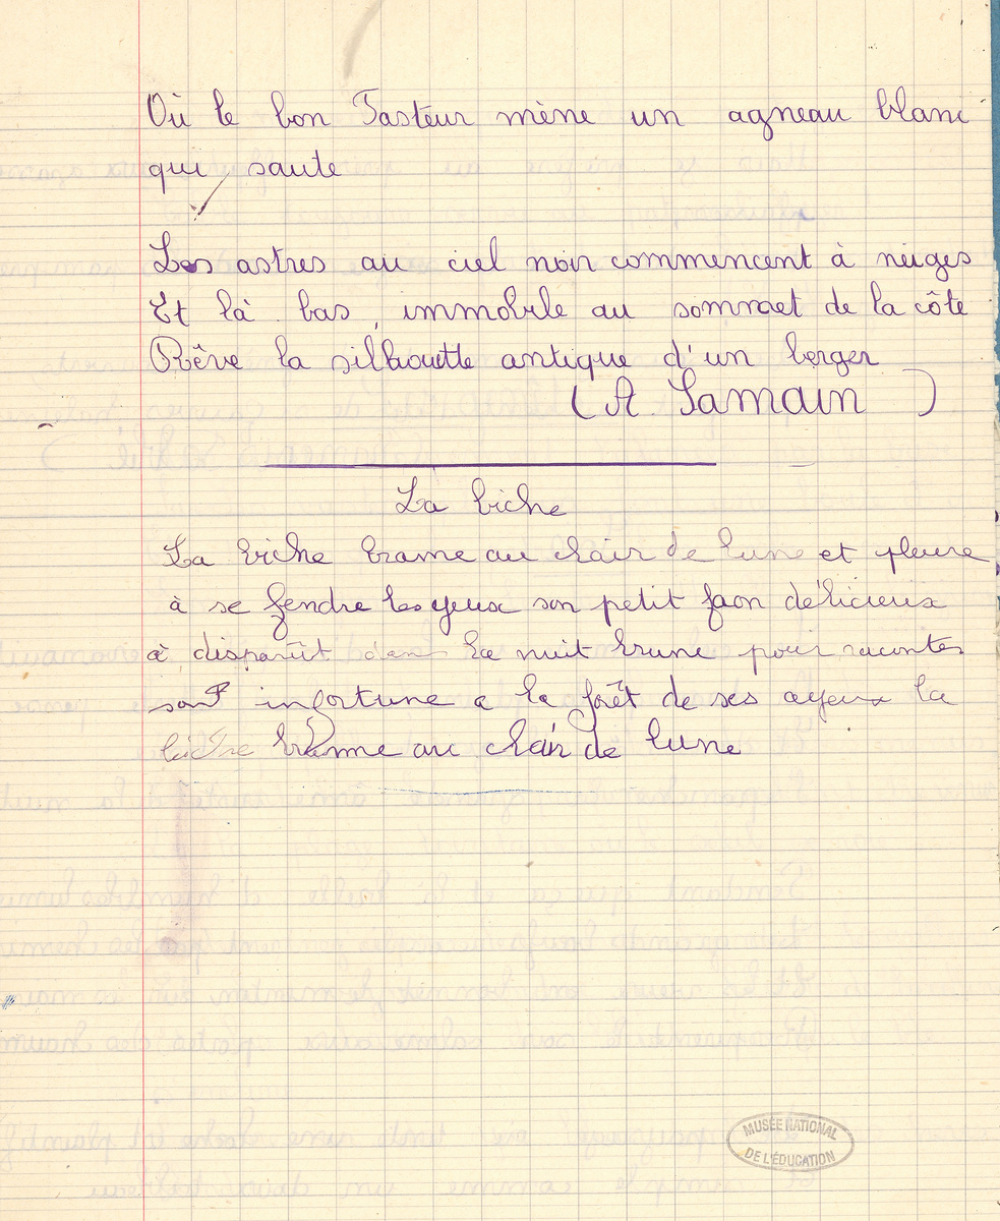 Où le bon Pasteur mène un agneau blanc
qui saute
Les astres au ciel noir commencent à neiges
Et là bas, immobile au sommet de la côte
Rêve la silhouette antique d'un berger
(A Samain)
La biche
La biche brame au clair de lune et pleure
à se fendre les yeux son petit faon délicieux
à disparût dans la nuit brune pour raconter
son infortune a la forêt de ses ayeux la
biche brame au clair de lune
MUSÉE NATIONAL
DE L'ÉDUCATION